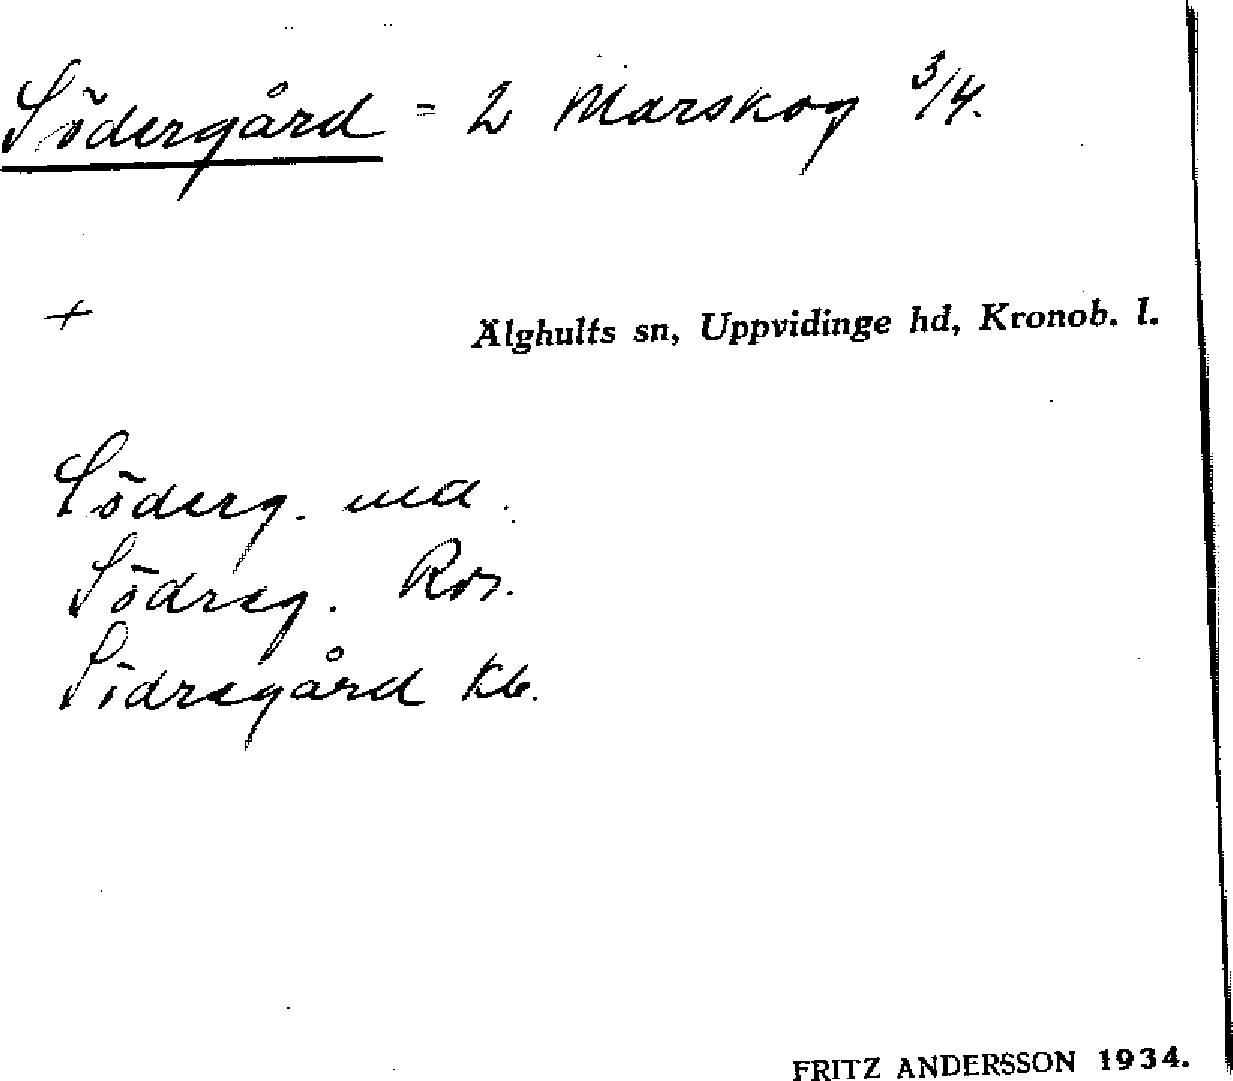 Södergård = 2 Marskog 3/4.
+
Älghults sn, Uppvidinge hd, Kronob. l.
Söderg. ma.
Södreg. Ros.
Södregård Kb.
FRITZ ANDERSSON 1934.